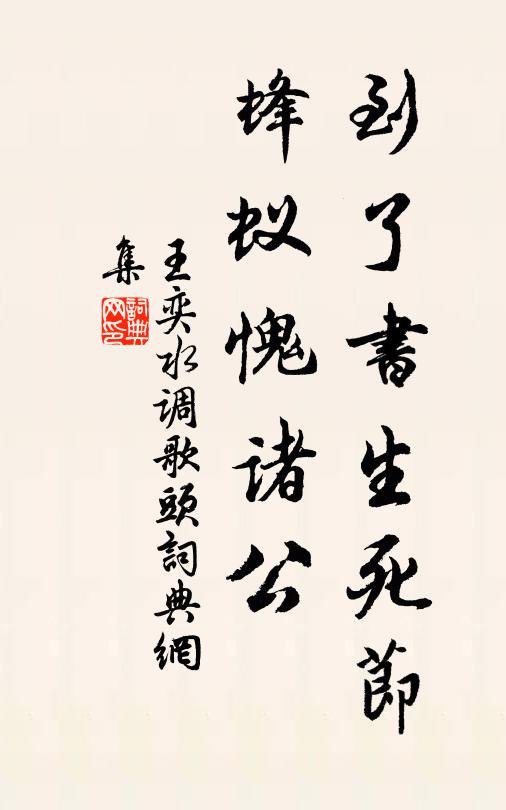 到了書生死節
蜂蚁愧諸公
王奕水调歌頭詞典網
集
詞典
网印